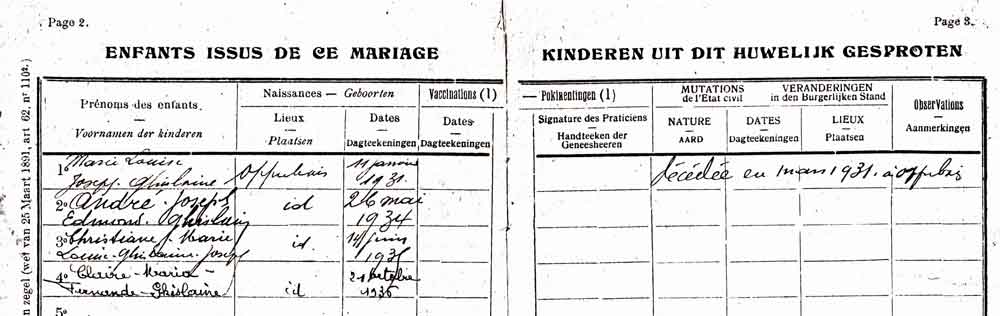 Page 2.
Page 3.
ENFANTS ISSUS DE CE MARIAGE
KINDEREN UIT DIT HUWELIJK GESPROTEN
n zegel (wet van 25 Maart 1891, art 62, nr 110t.)
Prénoms des enfants.
Voornamen der kinderen
Naissances — Geboorten
Lieux
Plaatsen
Dates
Dagteekeningen
Vaccinations (1)
Dates
Dagteekeningen
— Pokinentingen (1)
Signature des Praticiens
Handteeken der
Geneesheeren
MUTATIONS
de l'Etat civil
VERANDERINGEN
in den Burgerlijken Stand
NATURE
AARD
DATES
Dagteekeningen
LIEUX
Plaatsen
Observations
Aanmerkingen
1º Marie Louise
Joseph. Ghislaine
Opprebais
11 janvier
1931.
décédée en mars 1931. à Opprebais
2º André Joseph
Edmond. Ghislain
id
26 mai
1934
3º Christiane Marie
Louise-Ghislaine. Joseph
id.
14 juin
4º Claire-Maria-
Fernande-Ghislaine
id
octobre
1936
5º